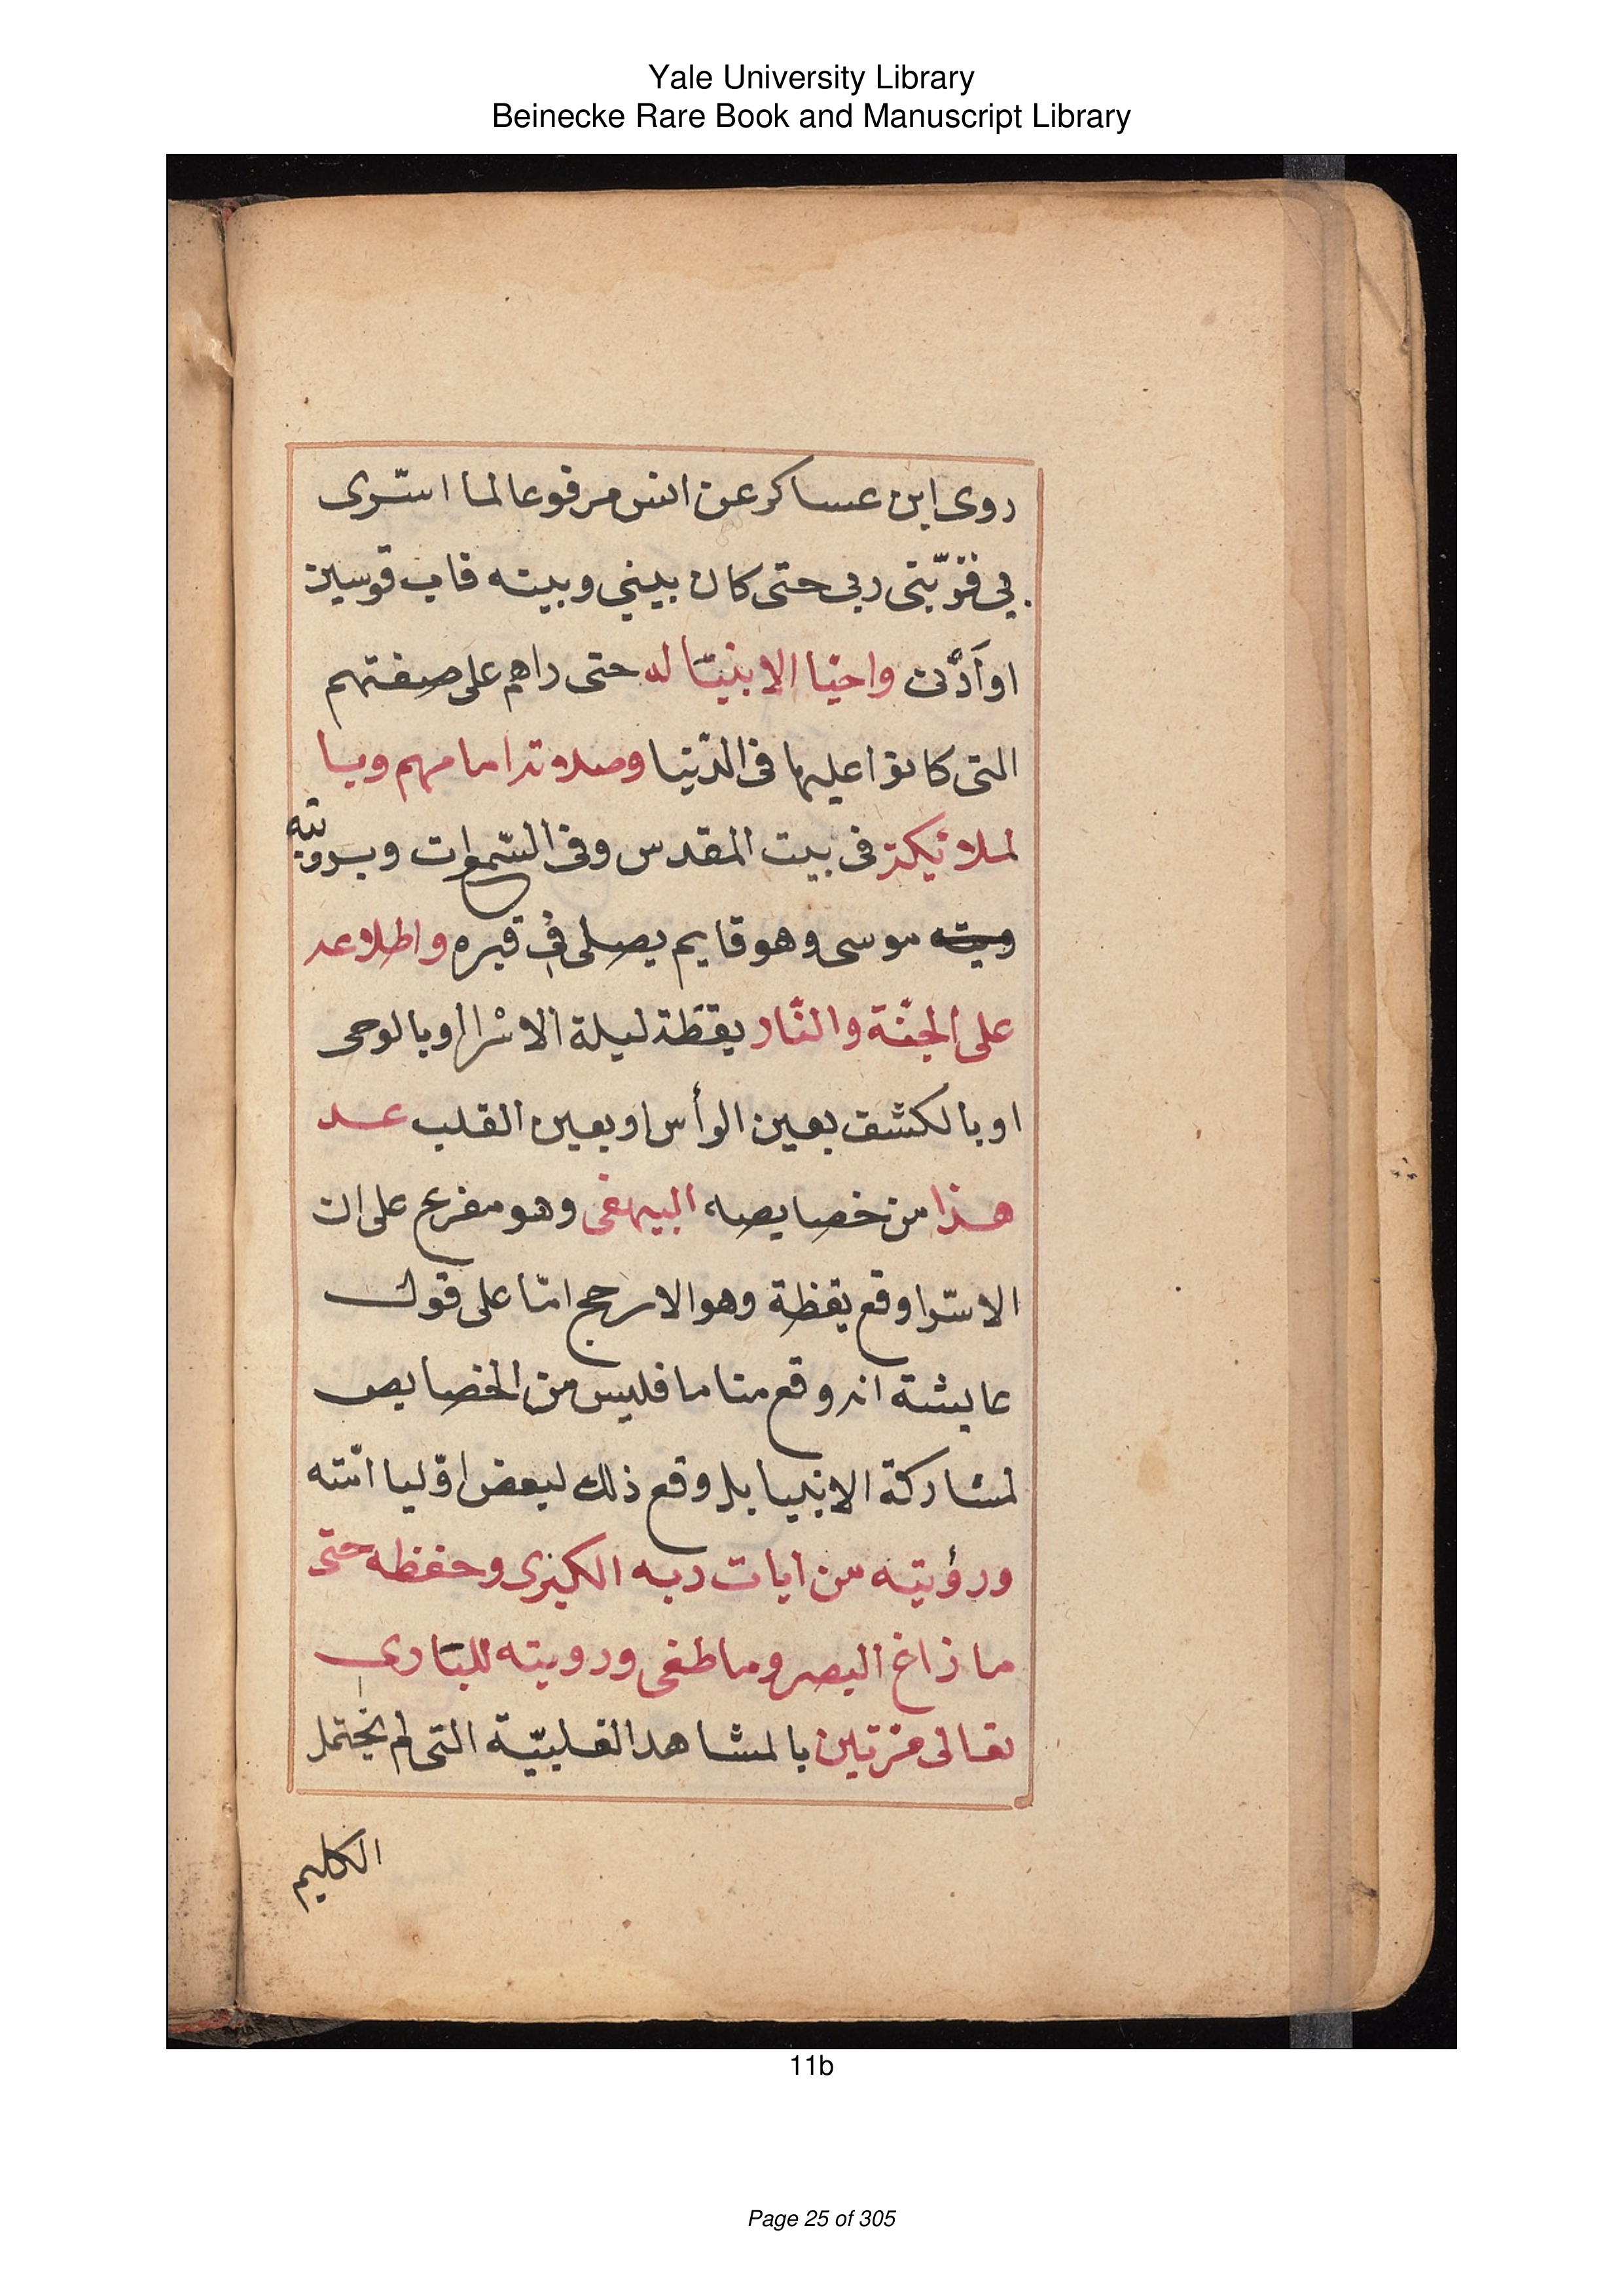 Yale University Library
Beinecke Rare Book and Manuscript Library
روى ابن عساكر عن انس مرفوعا لما اسّرى
بي فقرّبنى ربى حتى كان بينى وبينه قاب قوسين
او اَدْنى واحيّا الانبيّا له حتى راهم على صفتهم
التى كانوا عليها فى الدّنيا وصلاته امامهم وبا
لملائكة فى بيت المقدس وفى السّموات وبرويته
موسى وهو قايم يصلى فى قبره واطلاعه
على الجنّة والنّار يقظة ليلة الاسْرا او بالوحى
او بالكشف بعين الرأس او بعين القلب عد
هذا من خصايصه البيهقى وهو مفرع على ان
الاسّرا وقع يقظة وهو الارجح امّا على قول
عايشة انه وقع مناما فليس من الخصايص
لمشاركة الانبيا بل وقع ذلك لبعض اوّليا امّته
ورؤيته من ايات ربه الكبرى وحفظه حتى
ما زاغ البصر وما طغى ورويته للبارى
تعالى مرّتين بالمشاهد القلبيّة التى لم يحتمل
الكليم
11b
Page 25 of 305